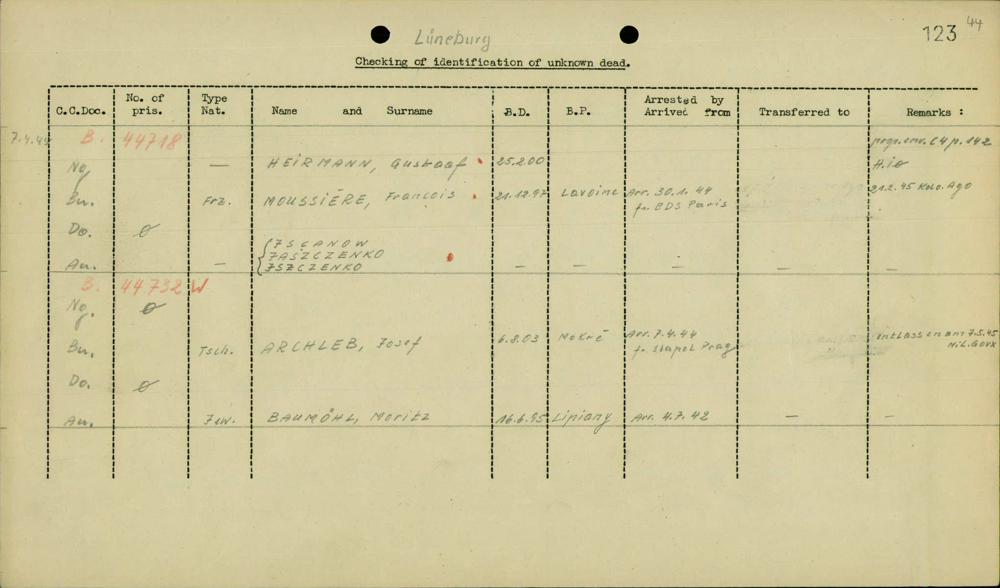 44
123
Lüneburg
Checking of identification of unknown dead.
C.C.Doc. No. of pris. Type Nat. Name and Surname B.D. B.P. Arrested by Arrived from Transferred to Remarks :
7.4.45 B. 44718 C4 p. 142
Ng. — HEIRMANN, Gustaaf 25.2.00
Bu. Frz. MOUSSIÈRE, Francois 21.12.97 Lavoine Arr. 30.1.44
fr. BDS Paris
Do. ø
{JSCANOW
JASZCZENKO
Au. — JSZCZENKO — — — — —
B. 44732 W
Ng. ø
Bu. Tsch. ARCHLEB, Josef 6.8.03 Mokré Arr. 7.4.44
fr. Stapol Prag
entlassen am 7.5.45
Do. ø
Au. BAUMÖHL, Moritz 16.6.95 Lipiany Arr. 4.7.42 — —